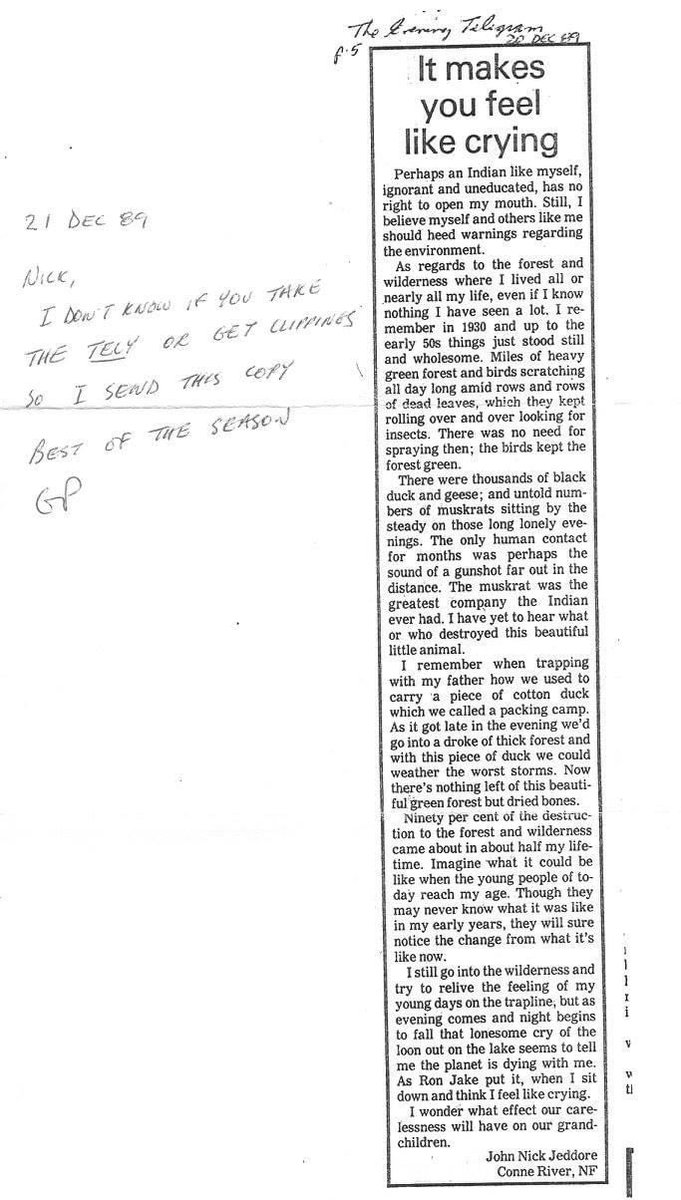 The Evening Telegram
20 DEC 89
p.5
It makes
you feel
like crying
Perhaps an Indian like myself,
ignorant and uneducated, has no
right to open my mouth. Still, I
believe myself and others like me
should heed warnings regarding
the environment.
As regards to the forest and
wilderness where I lived all or
nearly all my life, even if I know
nothing I have seen a lot. I re-
member in 1930 and up to the
early 50s things just stood still
and wholesome. Miles of heavy
green forest and birds scratching
all day long amid rows and rows
of dead leaves, which they kept
rolling over and over looking for
insects. There was no need for
spraying then; the birds kept the
forest green.
There were thousands of black
duck and geese; and untold num-
bers of muskrats sitting by the
steady on those long lonely eve-
nings. The only human contact
for months was perhaps the
sound of a gunshot far out in the
distance. The muskrat was the
greatest company the Indian
ever had. I have yet to hear what
or who destroyed this beautiful
little animal.
I remember when trapping
with my father how we used to
carry a piece of cotton duck
which we called a packing camp.
As it got late in the evening we'd
go into a droke of thick forest and
with this piece of duck we could
weather the worst storms. Now
there's nothing left of this beauti-
ful green forest but dried bones.
Ninety per cent of the destruc-
tion to the forest and wilderness
came about in about half my life-
time. Imagine what it could be
like when the young people of to-
day reach my age. Though they
may never know what it was like
in my early years, they will sure
notice the change from what it's
like now.
I still go into the wilderness and
try to relive the feeling of my
young days on the trapline, but as
evening comes and night begins
to fall that lonesome cry of the
loon out on the lake seems to tell
me the planet is dying with me.
As Ron Jake put it, when I sit
down and think I feel like crying.
I wonder what effect our care-
lessness will have on our grand-
children.
John Nick Jeddore
Conne River, NF
21 DEC 89
NICK,
I DON'T KNOW IF YOU TAKE
THE TELY OR GET CLIPPINGS
SO I SEND THIS COPY
BEST OF THE SEASON
GP